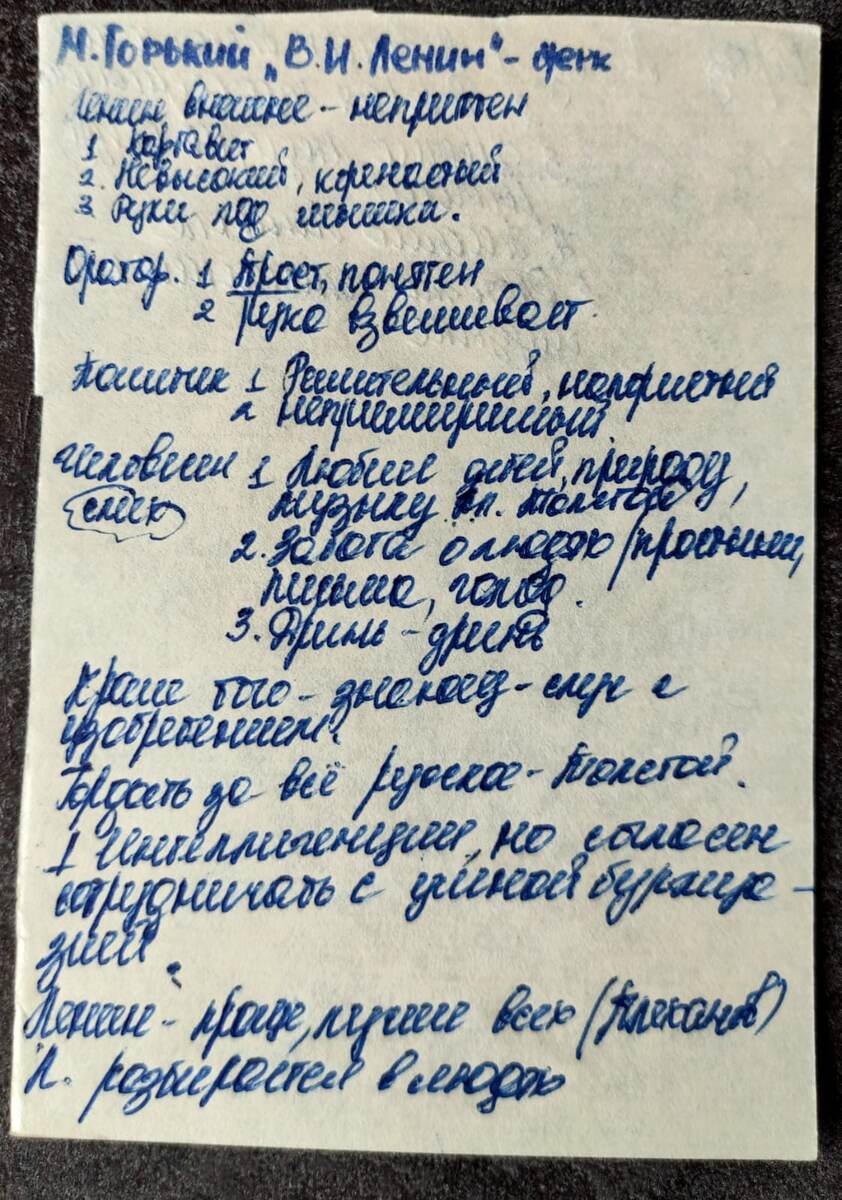 М. Горький „В. И. Ленин" - очерк
Ленин внешне - неприятен
1 Картавит
2. Невысокий, коренастый
3. Руки под мышки.
Оратор. 1 Прост, понятен
2 Рука взвешивает.
Политик 1 Решительный, напористый
2 непримиримый
Человечен 1 Любит детей, природу,
музыку, Толстого
смех
2. Забота о людях (простыни,
письма, голод.
3. Дринь-дринь
Кроме того - - случ с
изобретением.
Гордость за всё русское - Толстой.
1 Интеллигенции, но согласен
сотрудничать с учёной буржуа-
зией.
Ленин - проще, лучше всех (Плеханов)
Л. разбирается в людях